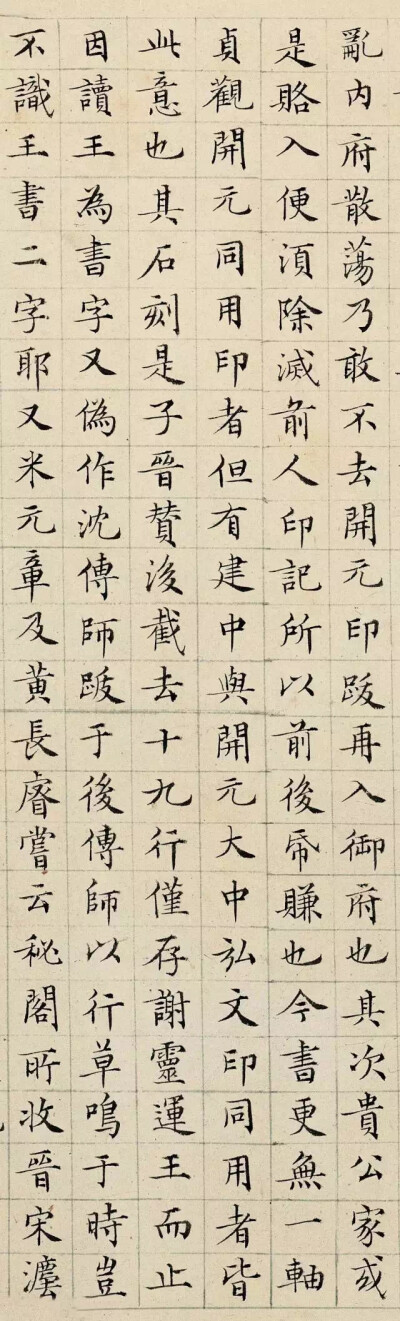 亂内府散蕩乃敢不去開元印跋再入御府也其次貴公家或
是賂入便須除滅前人印記所以前後帋賺也今書更無一軸
貞觀開元同用印者但有建中與開元大中弘文印同用者皆
此意也其石刻是子晉贊後截去十九行僅存謝靈運王而止
因讀王為書字又偽作沈傳師跋于後傳師以行草鳴于時豈
不識王書二字耶又米元章及黃長睿嘗云秘閣所收晉宋灋